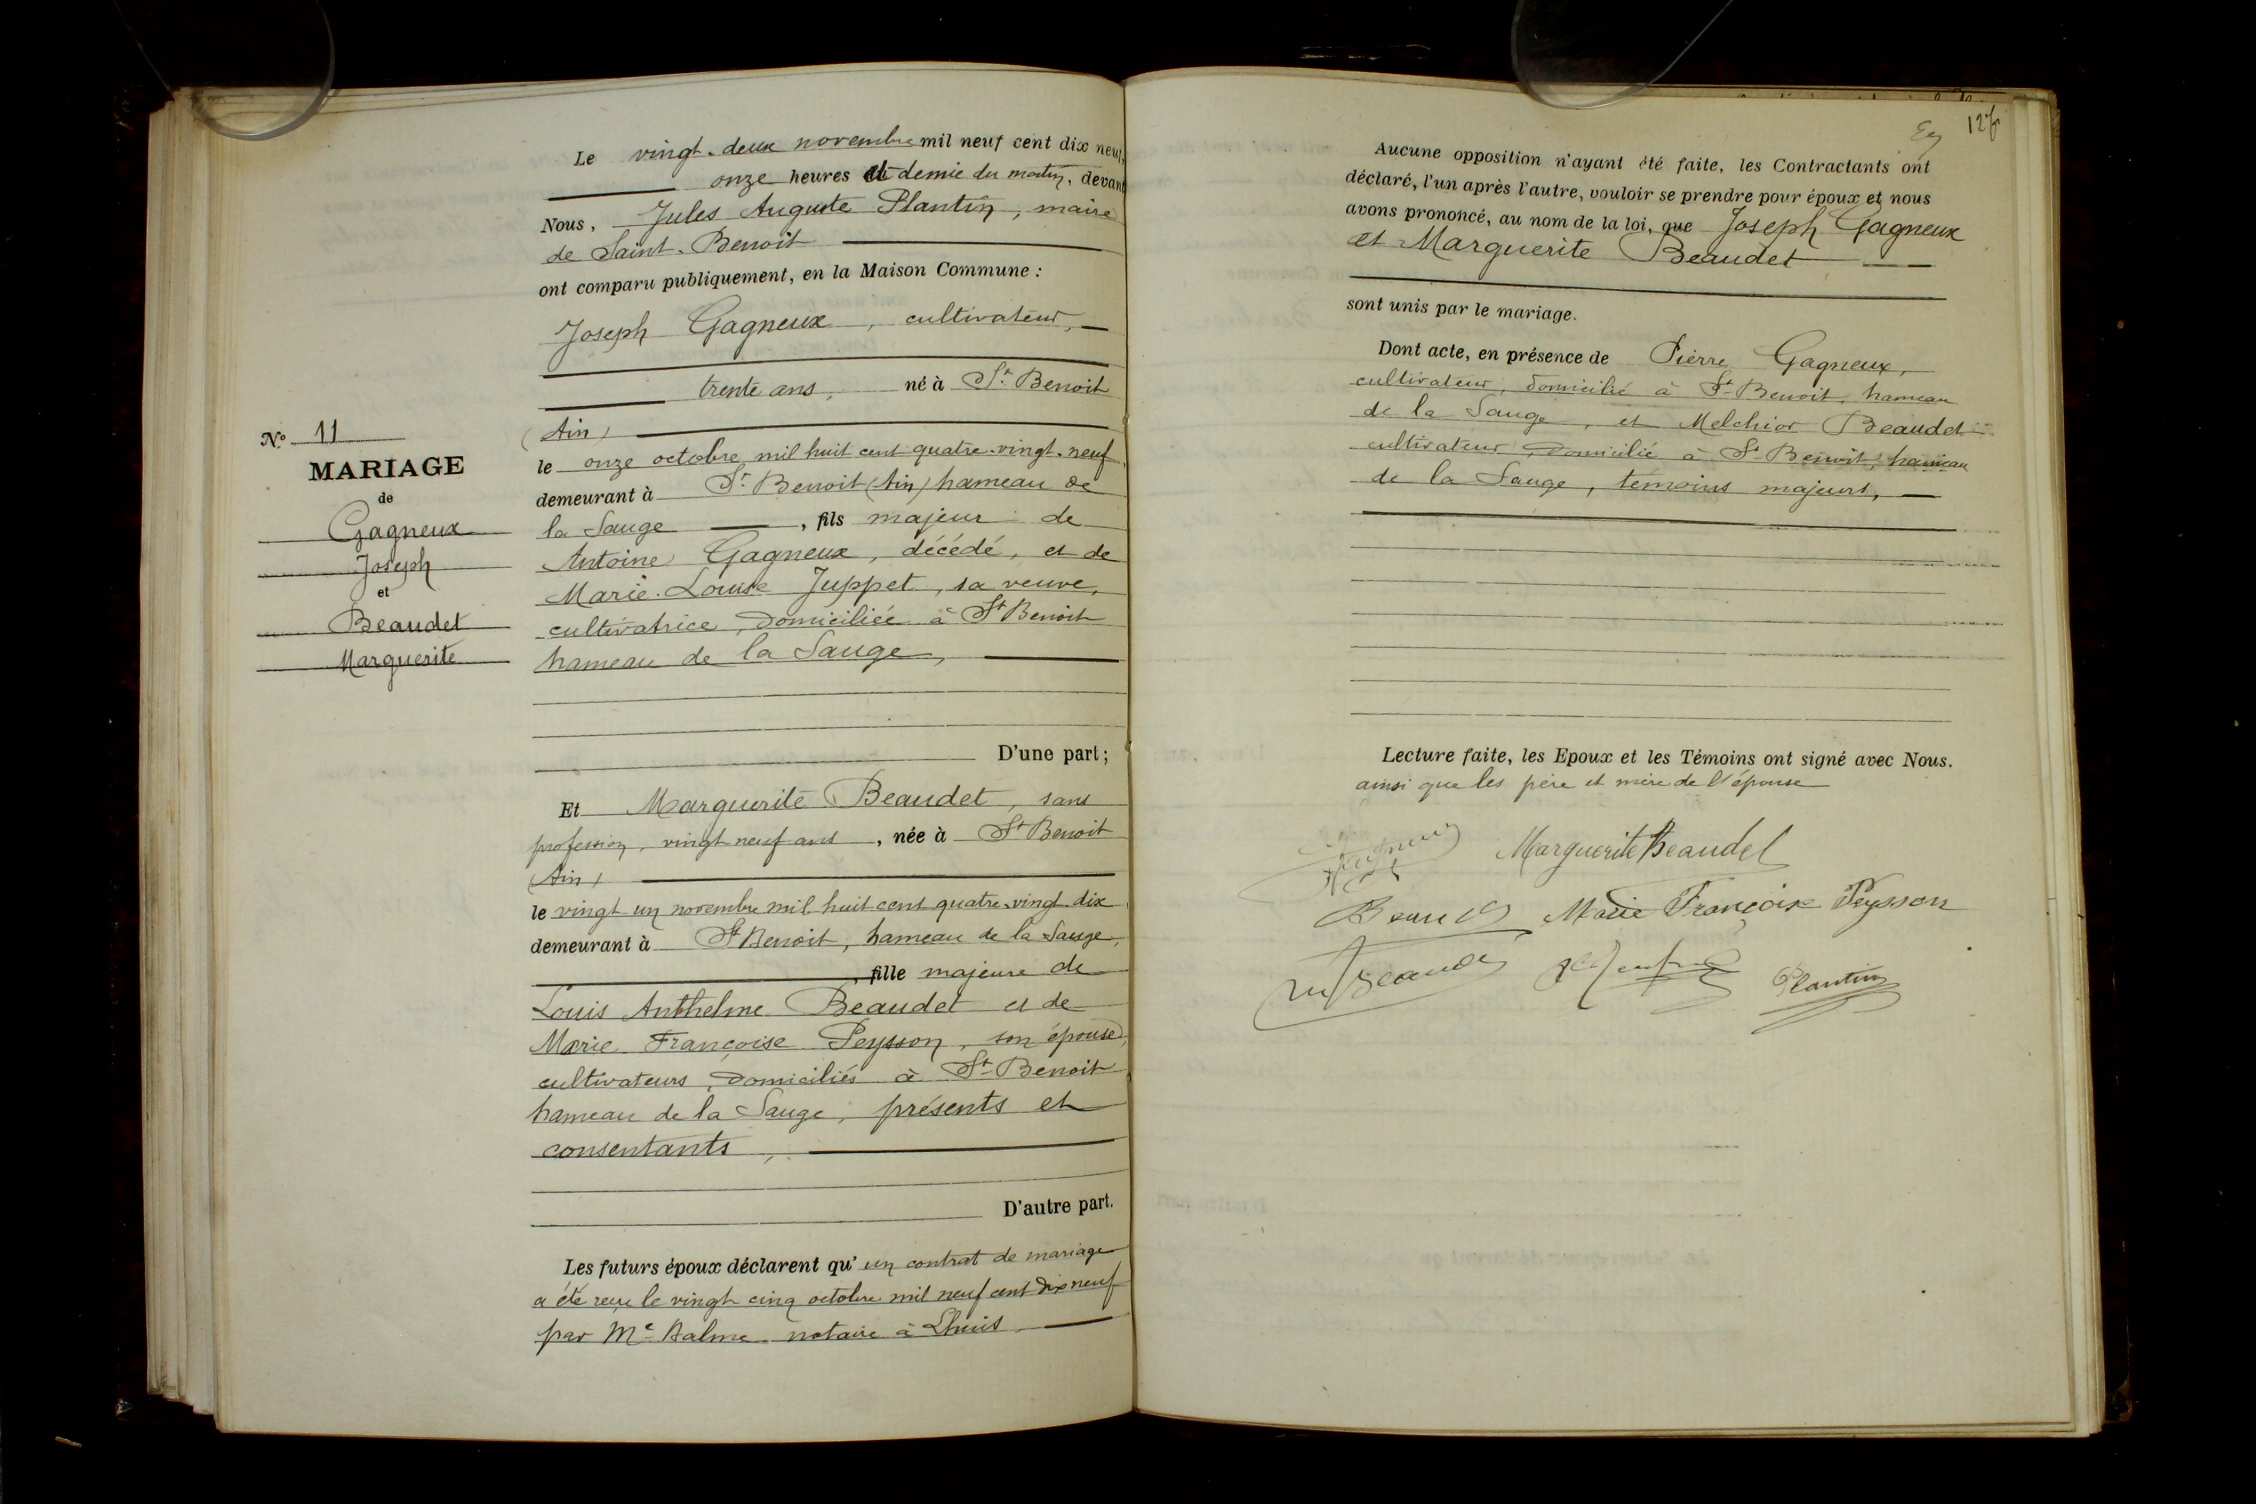 Le vingt-deux novembre mil neuf cent dix neuf,
onze heures et demie du matin, devant
Nous, Jules Auguste Plantin, maire
de Saint-Benoit
ont comparu publiquement, en la Maison Commune :
Joseph Gagneux, cultivateur,
trente ans, né à St Benoit
(Ain)
le onze octobre mil huit cent quatre-vingt-neuf
demeurant à St Benoit (Ain) hameau de
la Sauge, fils majeur de
Antoine Gagneux, décédé, et de
Marie-Louise Juppet, sa veuve,
cultivatrice, domiciliée à St Benoit
hameau de la Sauge,
D'une part;
Et Marguerite Beaudet, sans
profession, vingt neuf ans, née à St Benoit
(Ain)
le vingt un novembre mil huit cent quatre-vingt dix
demeurant à St Benoit, hameau de la Sauge,
, fille majeure de
Louis Anthelme Beaudet et de
Marie Françoise Peysson, son épouse,
cultivateurs, domiciliés à St Benoit
hameau de la Sauge, présents et
consentants,
D'autre part.
Les futurs époux déclarent qu'un contrat de mariage
a été reçu le vingt cinq octobre mil neuf cent dix neuf
par Me Balme notaire à Lhuis
No 11
MARIAGE
de
Gagneux
Joseph
et
Beaudet
Marguerite
Aucune opposition n'ayant été faite, les Contractants ont
déclaré, l'un après l'autre, vouloir se prendre pour époux et nous
avons prononcé, au nom de la loi, que Joseph Gagneux
et Marguerite Beaudet
sont unis par le mariage.
Dont acte, en présence de Pierre Gagneux,
cultivateur, domicilié à St Benoit, hameau
de la Sauge, et Melchior Beaudet
cultivateur domicilié à St Benoit, hameau
de la Sauge, témoins majeurs,
Lecture faite, les Epoux et les Témoins ont signé avec Nous.
ainsi que les père et mère de l'épouse
Gagneux Marguerite Beaudet
Marie Françoise Peysson
Beaudet
Plantin